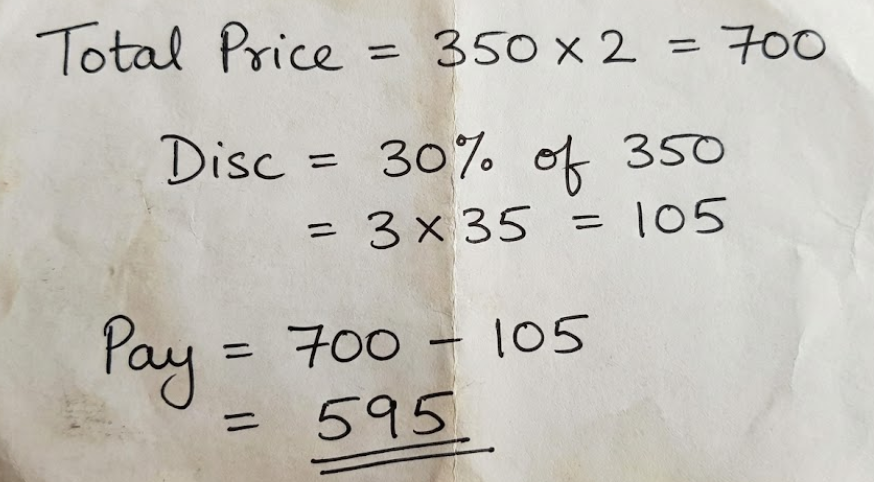 Total Price = 350 × 2 = 700
Disc = 30% of 350
= 3 × 35 = 105
Pay = 700 - 105
= 595